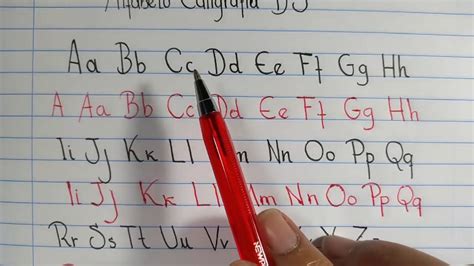 Alfabeto Caligrafía DJ
Aa Bb Cc Dd Ee Ff Gg Hh
A Aa Bb Cc Dd Ee Ff Gg Hh
Ii Jj Kk Ll Nn Oo Pp Qq
Ii Jj Kk Ll Mm Nn Oo Pp Qq
Rr Ss Tt Uu Vv